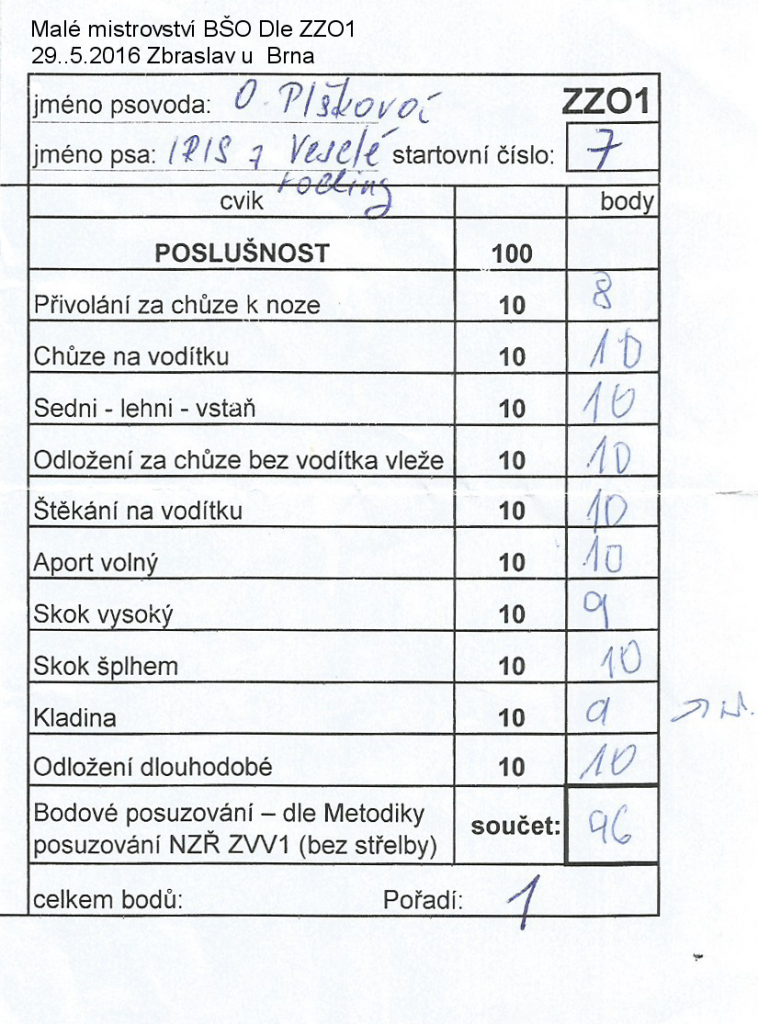 Malé mistrovství BŠO Dle ZZO1
29..5.2016 Zbraslav u Brna
jméno psovoda: O. Plškovoć ZZO1
jméno psa: IRIS z Veselé startovní číslo: 7
rodiny
cvik body
POSLUŠNOST 100
Přivolání za chůze k noze 10 8
Chůze na vodítku 10 10
Sedni - lehni - vstaň 10 10
Odložení za chůze bez vodítka vleže 10 10
Štěkání na vodítku 10 10
Aport volný 10 10
Skok vysoký 10 9
Skok šplhem 10 10
Kladina 10 9
Odložení dlouhodobé 10 10
Bodové posuzování – dle Metodiky
posuzování NZŘ ZVV1 (bez střelby) součet: 96
celkem bodů: Pořadí: 1